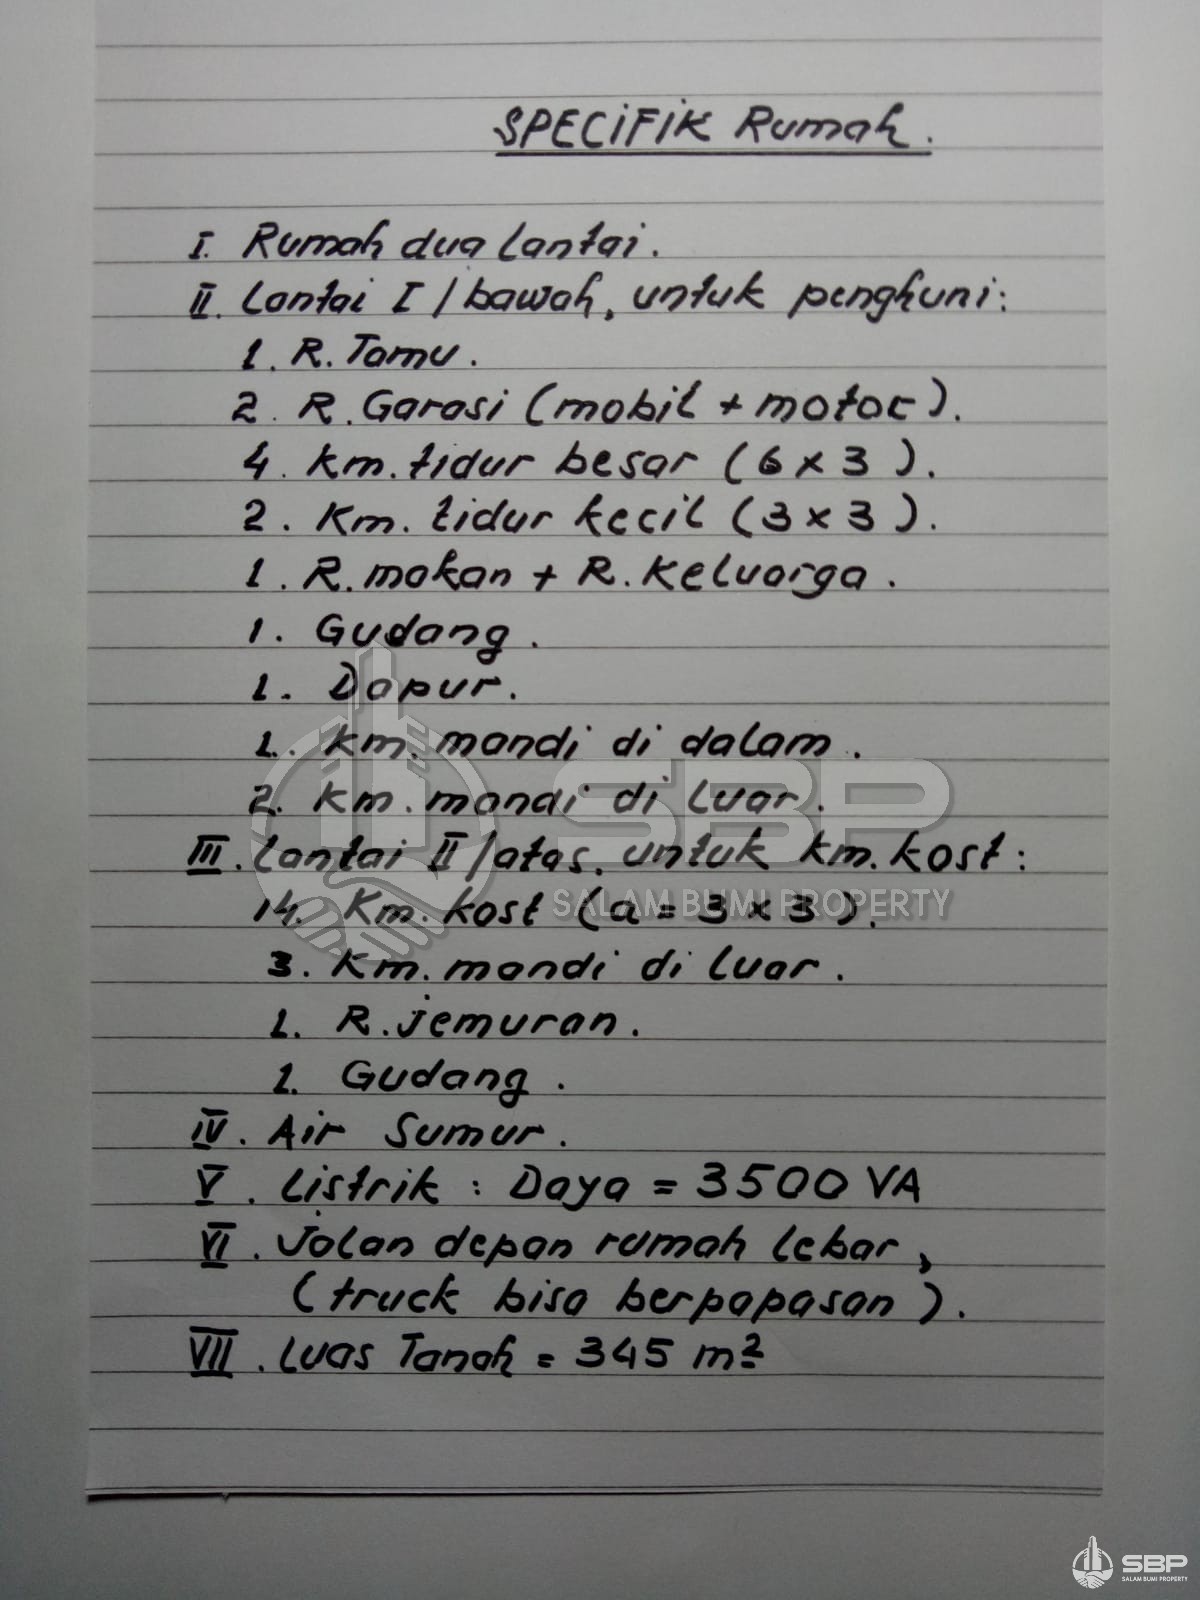 SPECIFIK Rumah.
I. Rumah dua lantai.
II. Lantai I/bawah, untuk penghuni:
1. R. Tamu.
2. R. Garasi (mobil + motor).
4. Km. tidur besar (6 x 3).
2. Km. tidur kecil (3 x 3).
1. R. makan + R. Keluarga.
1. Gudang.
1. Dapur.
1. Km. mandi di dalam.
2. Km. mandi di luar.
III. Lantai II/atas, untuk km. kost:
14. Km. kost (a = 3 x 3).
3. Km. mandi di luar.
1. R. jemuran.
1. Gudang.
IV. Air Sumur.
V. Listrik : Daya = 3500 VA
VI. Jalan depan rumah lebar,
(truck bisa berpapasan).
VII. Luas Tanah = 345 m²
SBP
SALAM BUMI PROPERTY
SBP
SALAM BUMI PROPERTY